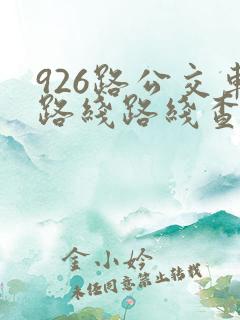 926路公交車
路线路线查
金小妗
未经同意禁止转载